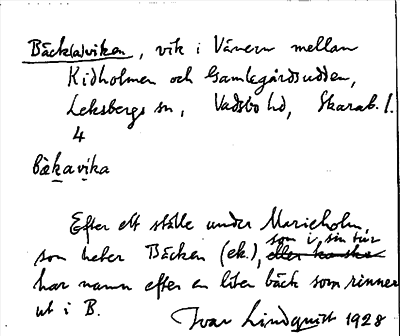 Bäck(a)viken, vik i Vänern mellan
Kidholmen och Gamlegårdsudden,
Leksbergs sn, Vadsbo hd, Skarab. l.
4
bäkavika
Efter ett ställe under Marieholm,
som i sin tur
som heter Bäcken (ek.), eller kanske
har namn efter en liten bäck som rinner
ut i B.
Ivar Lindquist 1928